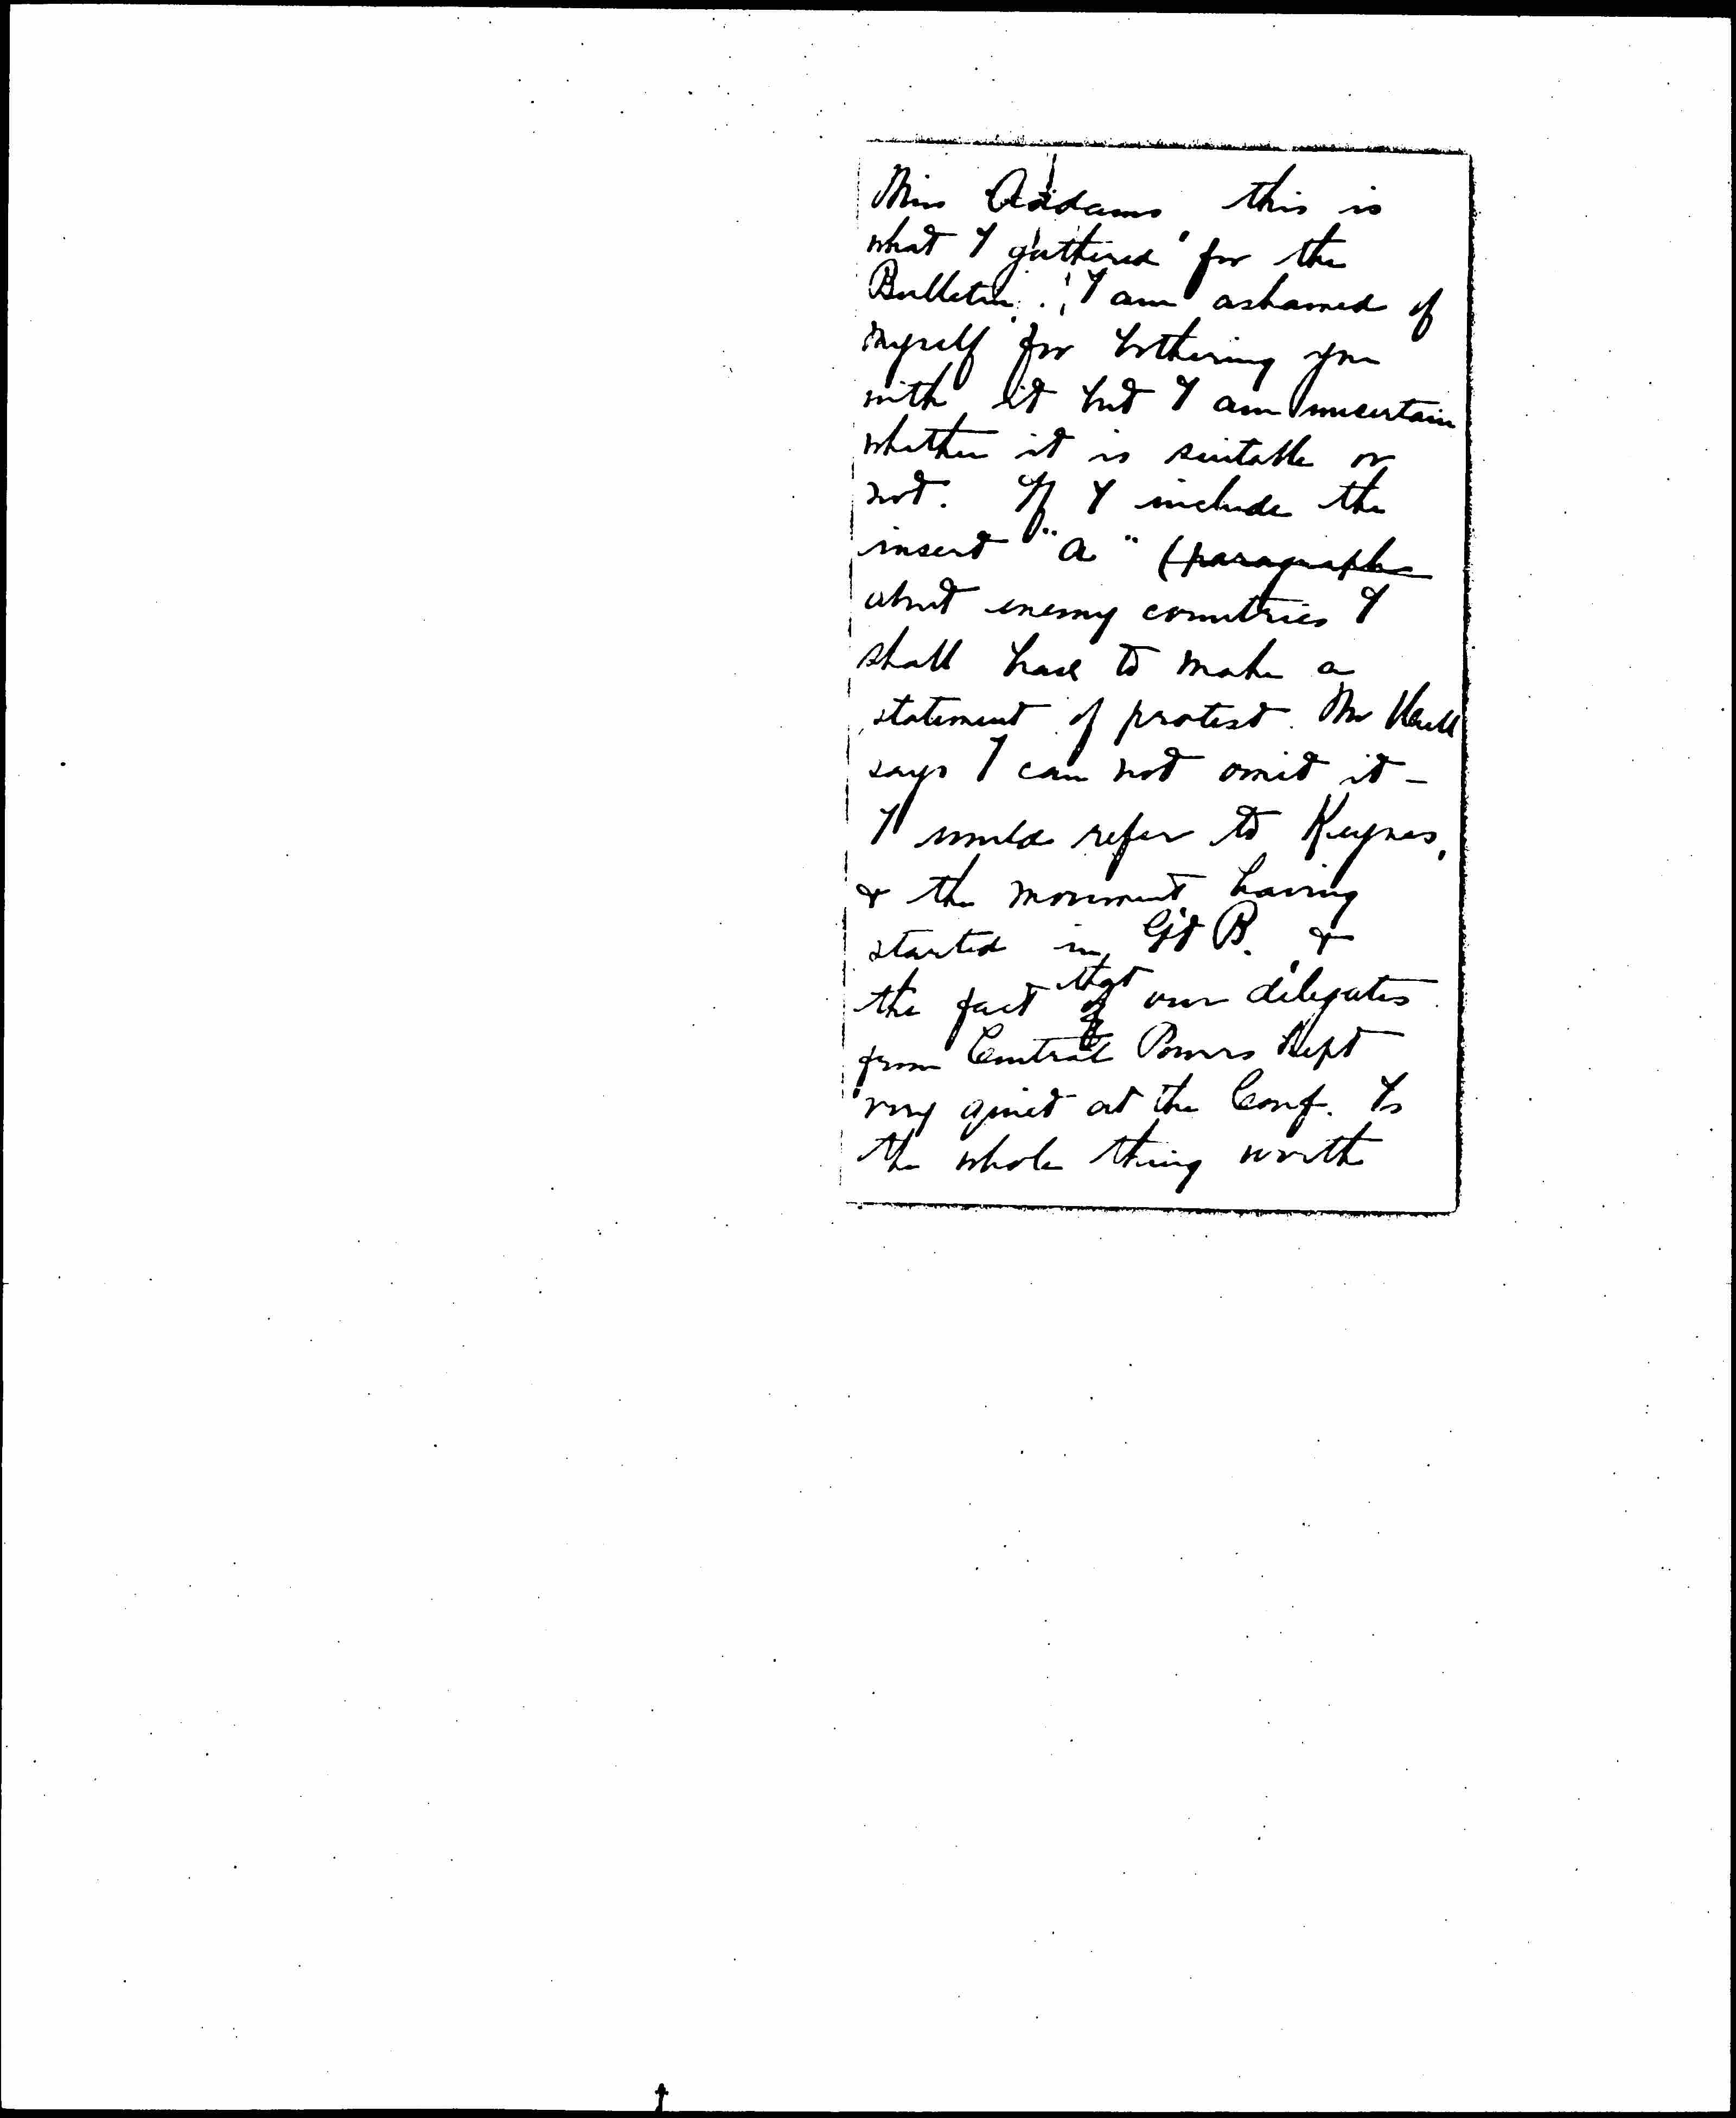 Miss Addams this is
what I gathered for the
Bulletin. I am ashamed of
myself for bothering you
with it but I am uncertain
whether it is suitable or
not. If I include the
insert "A" (paragraph
about enemy countries I
shall have to make a
statement of protest. Mr
says I can not omit it —
I would refer to Keynes,
& the movement having
started in Gt B. &
the fact that our delegates
from Central Powers kept
very quiet at the Conf. Is
the whole thing worth